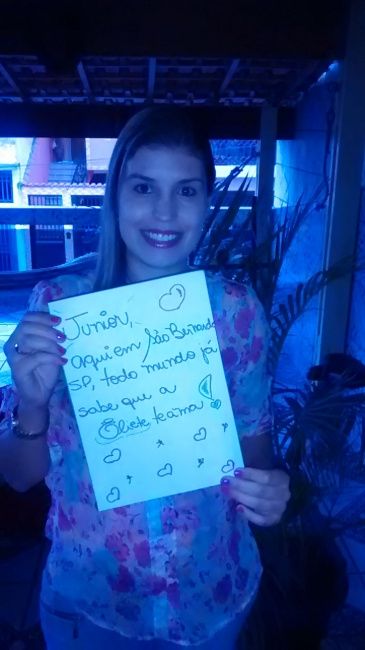 Junior,
aqui em São Bernardo
SP, todo mundo já
sabe que a
Eliete te ama!